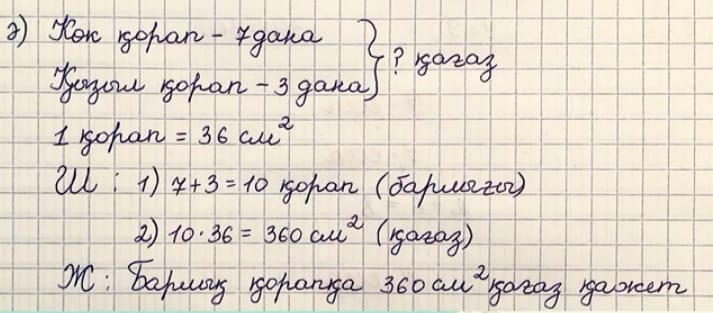 ә) Көк қорап - 7 дана
Қызыл қорап - 3 дана } ? қағаз
1 қорап = 36 см²
Ш : 1) 7+3 = 10 қорап (барлығы)
2) 10·36 = 360 см² (қағаз)
Ж : Барлық қорапқа 360 см² қағаз қажет